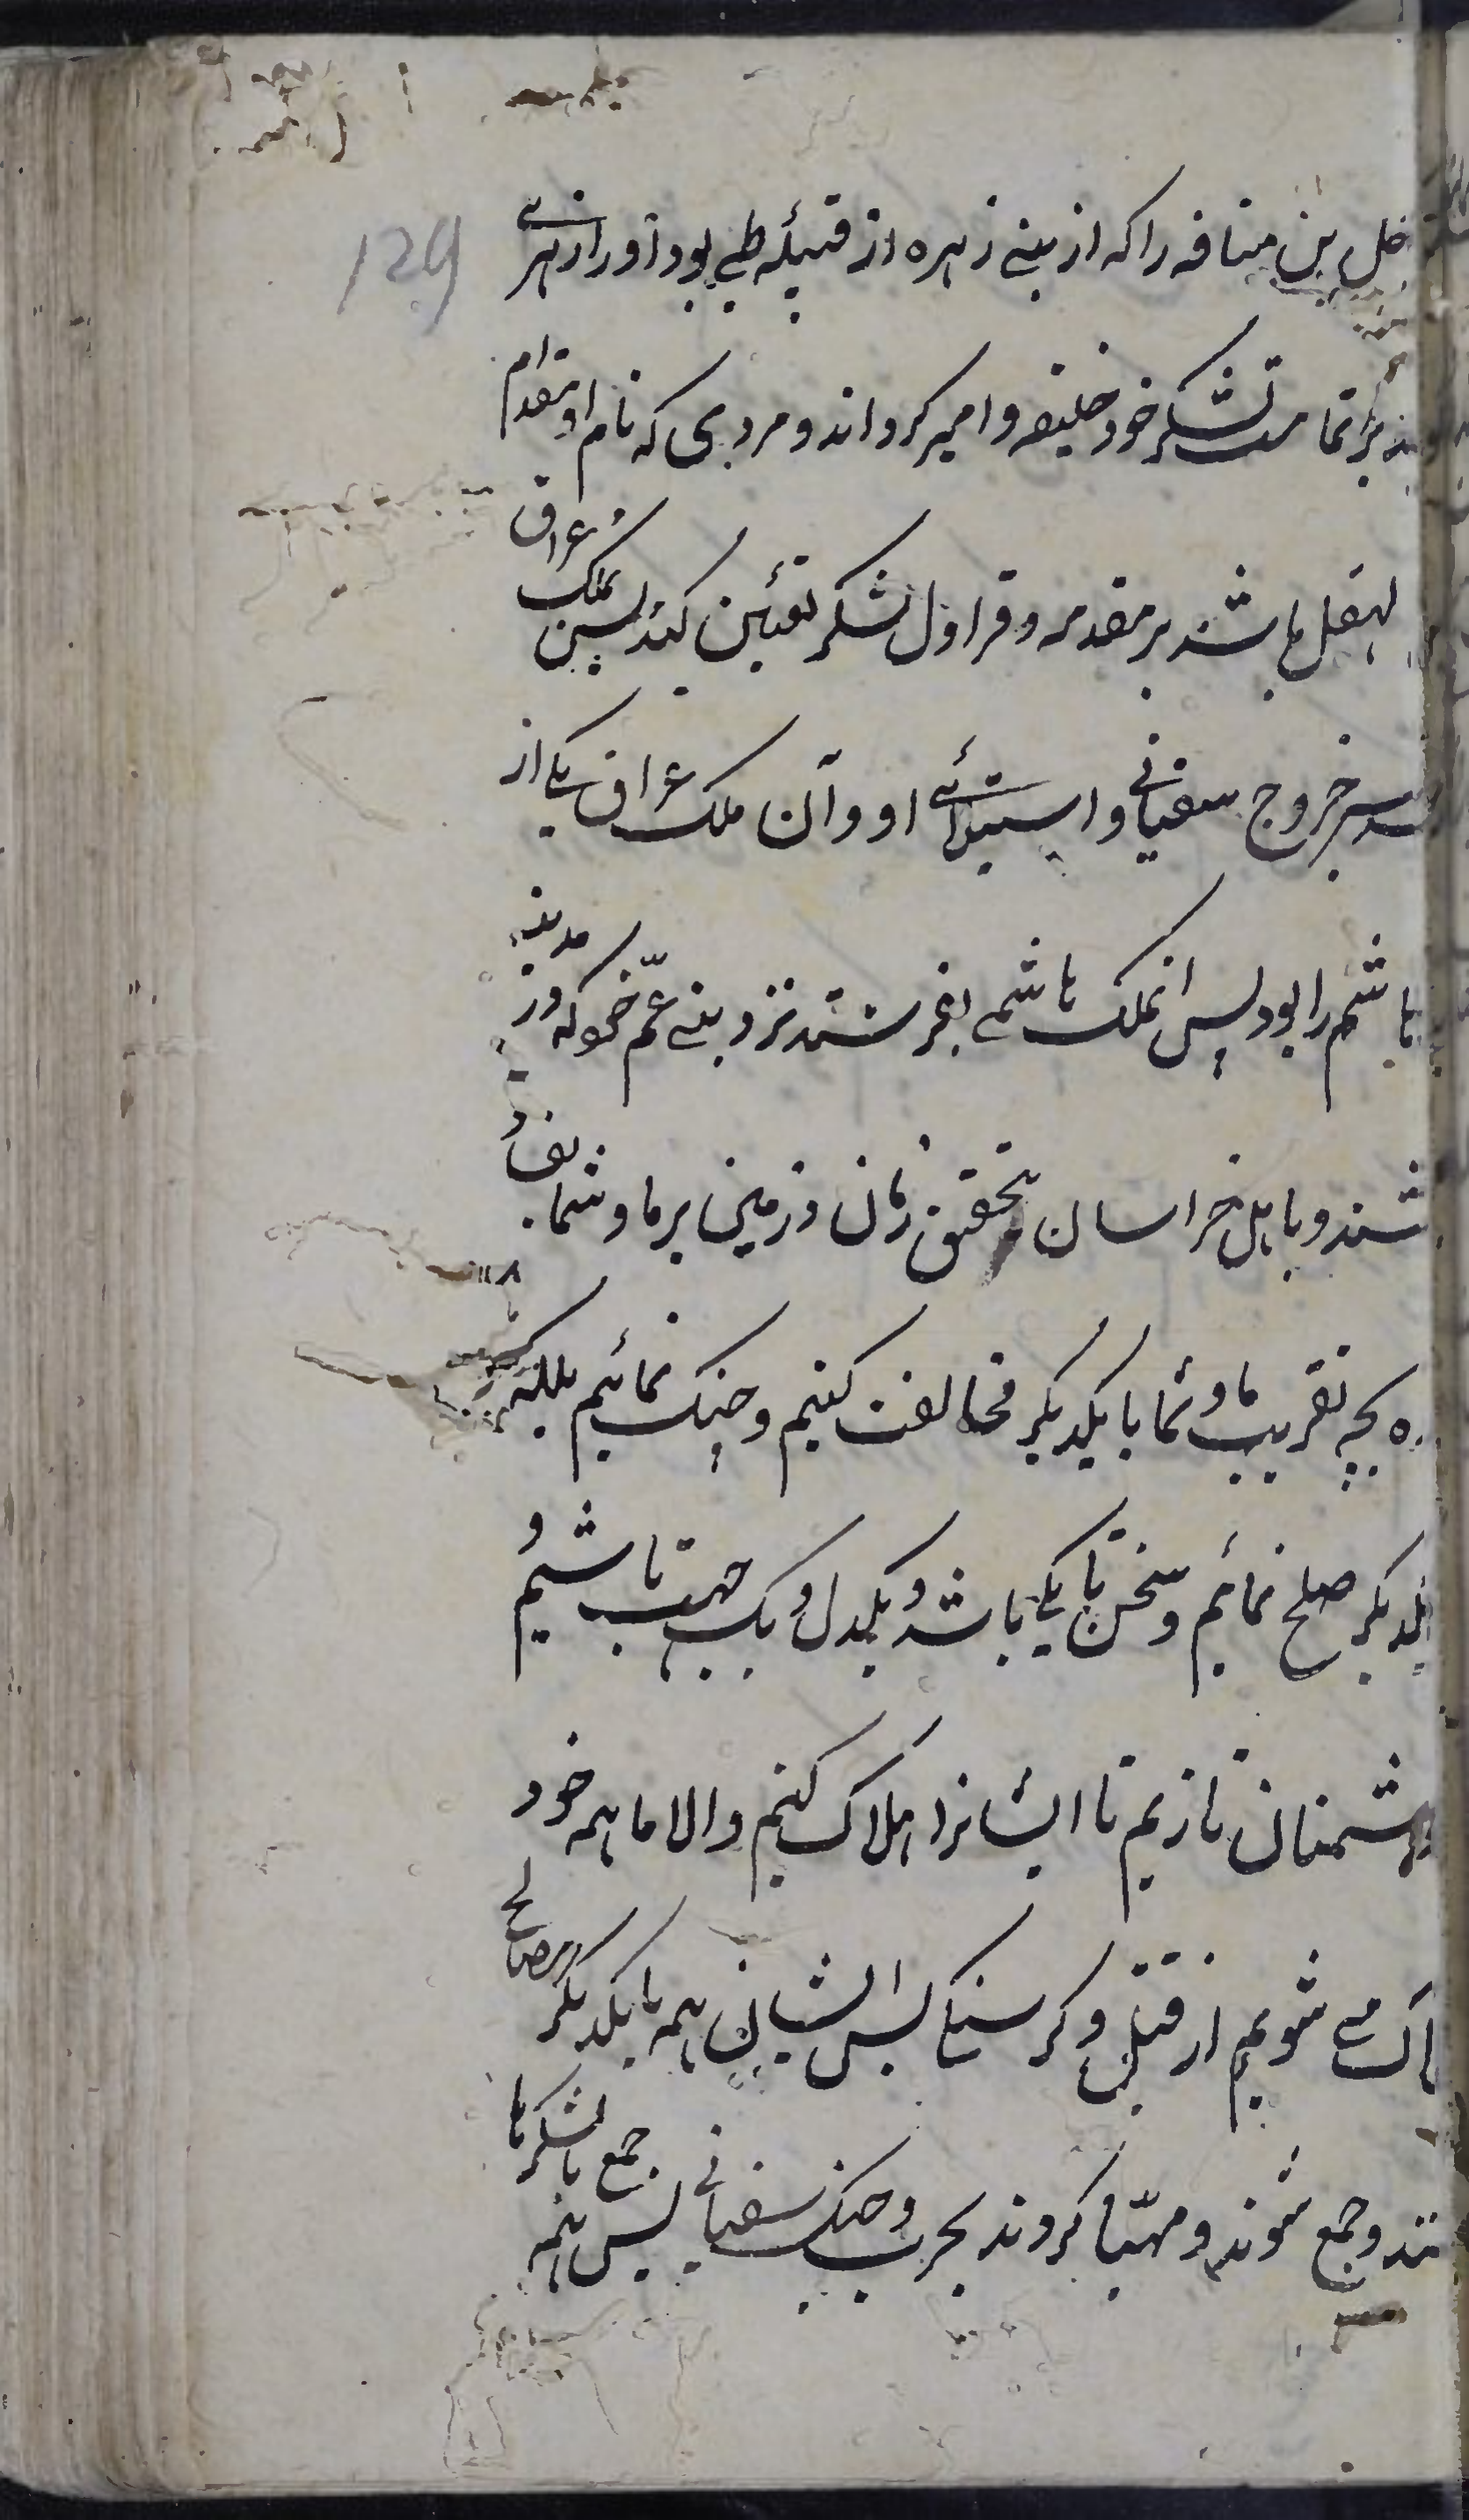 129
خل بن منافه را که از بنی زهره از قبیله طے بود آورا از هر
بر تمامت لشکر خود خلیفه و امیر کرداند و مردی که نام او مقدام
باشد بر مقدمه و قراول لشکر تعیین کند پس ملک عراق
خروج سفیانی و استیلائے او و آن ملک عراق یکے از
هاشم را بود پس انملک هاشمے بفرستد نزد بنے عمّ خود که در مدینه
شند و باهل خراسان بتحقیق زمان و زمین بر ما و شما
ه بچه تقریب ما و شما با یکدیگر مخالفت کنیم و جنک نمائیم بلکه
یکدیگر صلح نمائیم و سخن ما یکے باشد و یکدل و یک جهت باشیم و
بدشمنان تازیم تا ایشانرا هلاک کنیم والا ما همه خود
اک مے شویم از قتل و کرسنکے پس ایشان همه با یکدیگر مصالح
نند و جمع شوند و مهیّا کردند بحرب و جنک سفیانے پس همه جمع با لشکرها